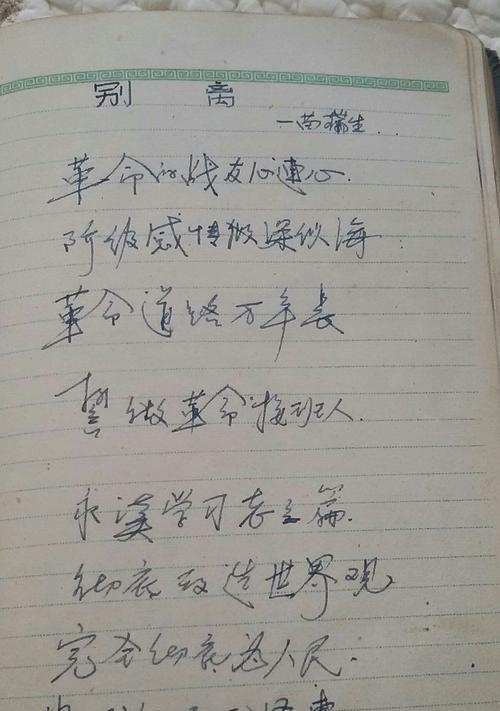 别 离
一苗瑞生...
革命的战友心连心.
阶级感情做深似海
革命道路万年长
誓做革命接班人.
永读学习老三篇.
彻底改造世界观
完全彻底为人民.